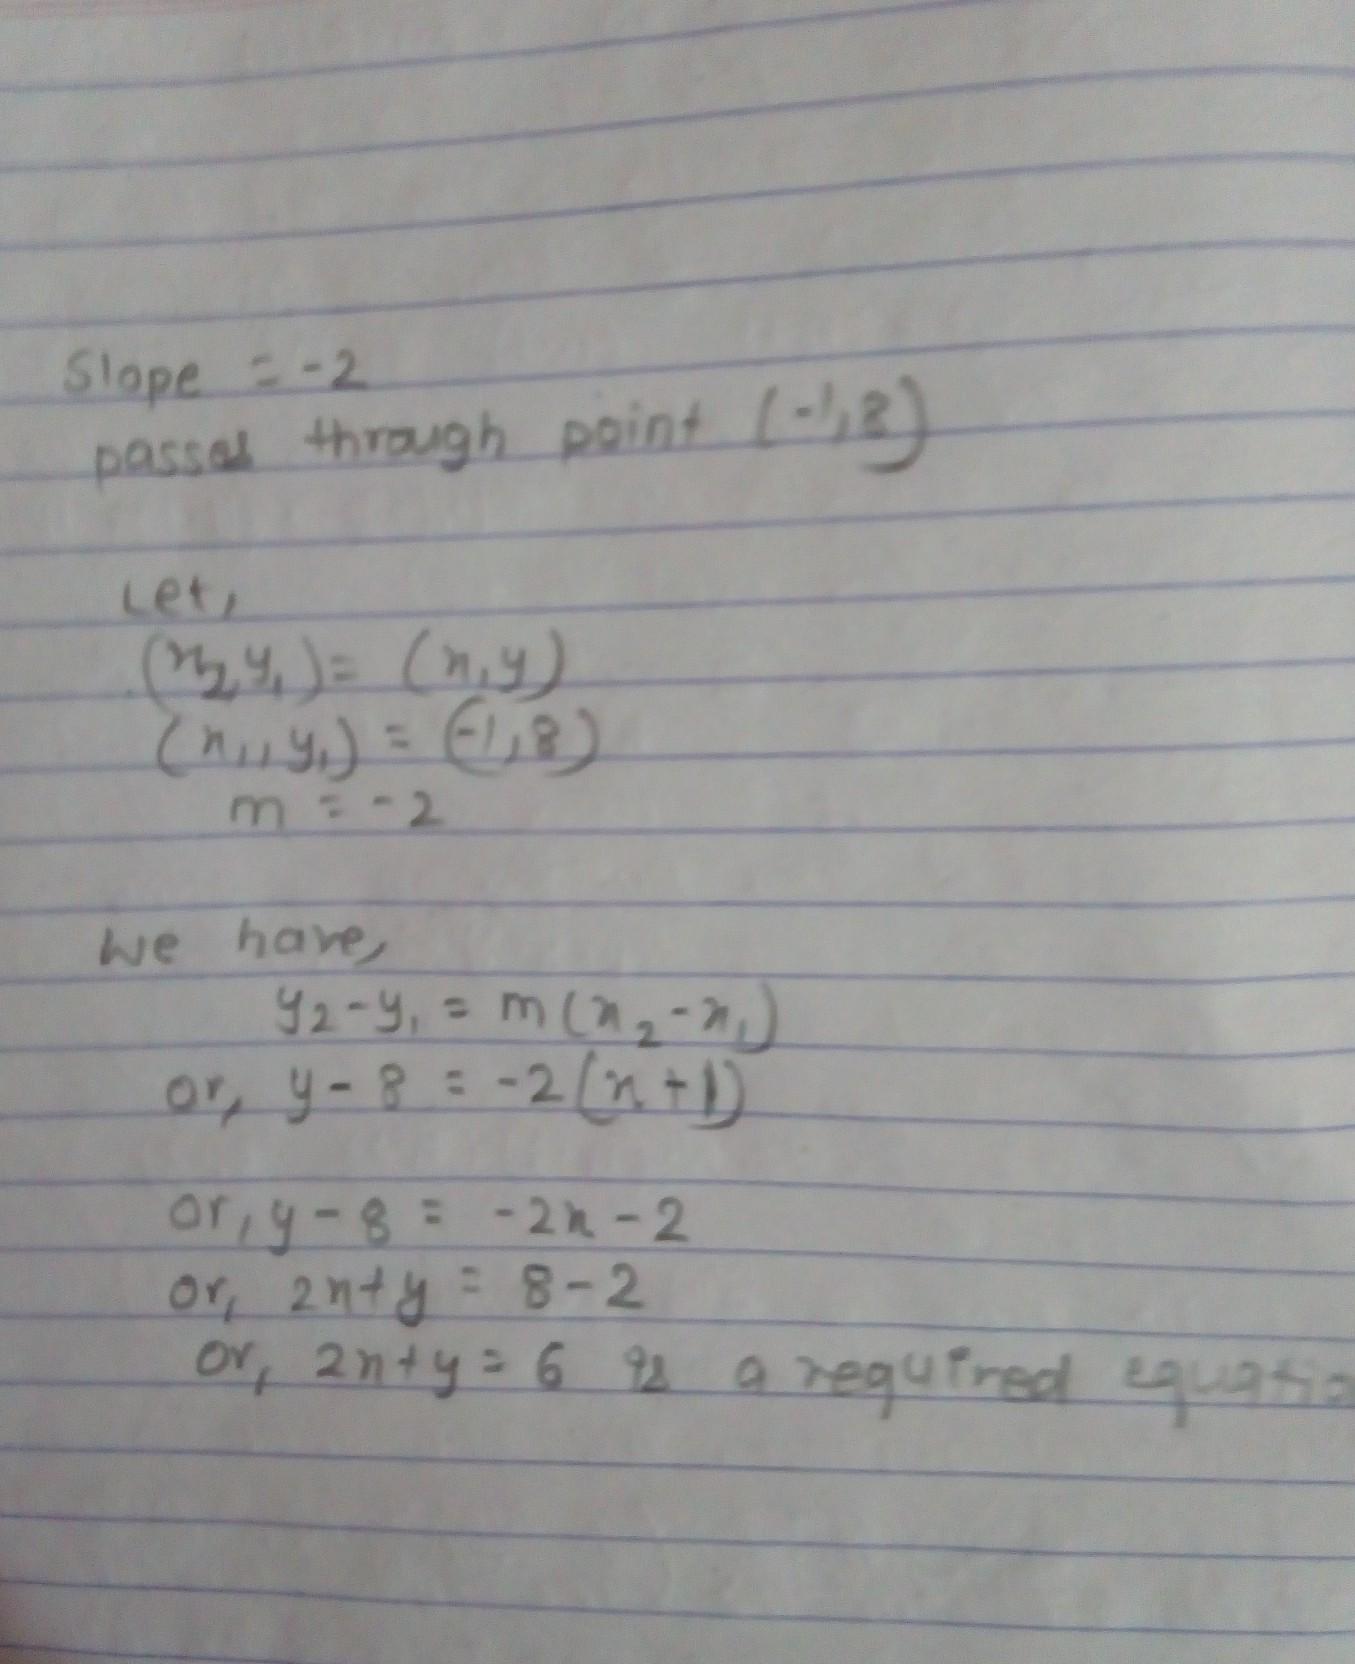 Slope = -2
passes through point (-1,8)
Let,
(x2,y1) = (x,y)
(x1,,y1) = (-1,8)
m = -2
We have,
y2-y1 = m(x2-x1)
or, y-8 = -2(x+1)
or, y-8 = -2x-2
or, 2x+y = 8-2
or, 2x+y = 6 is a required equatio